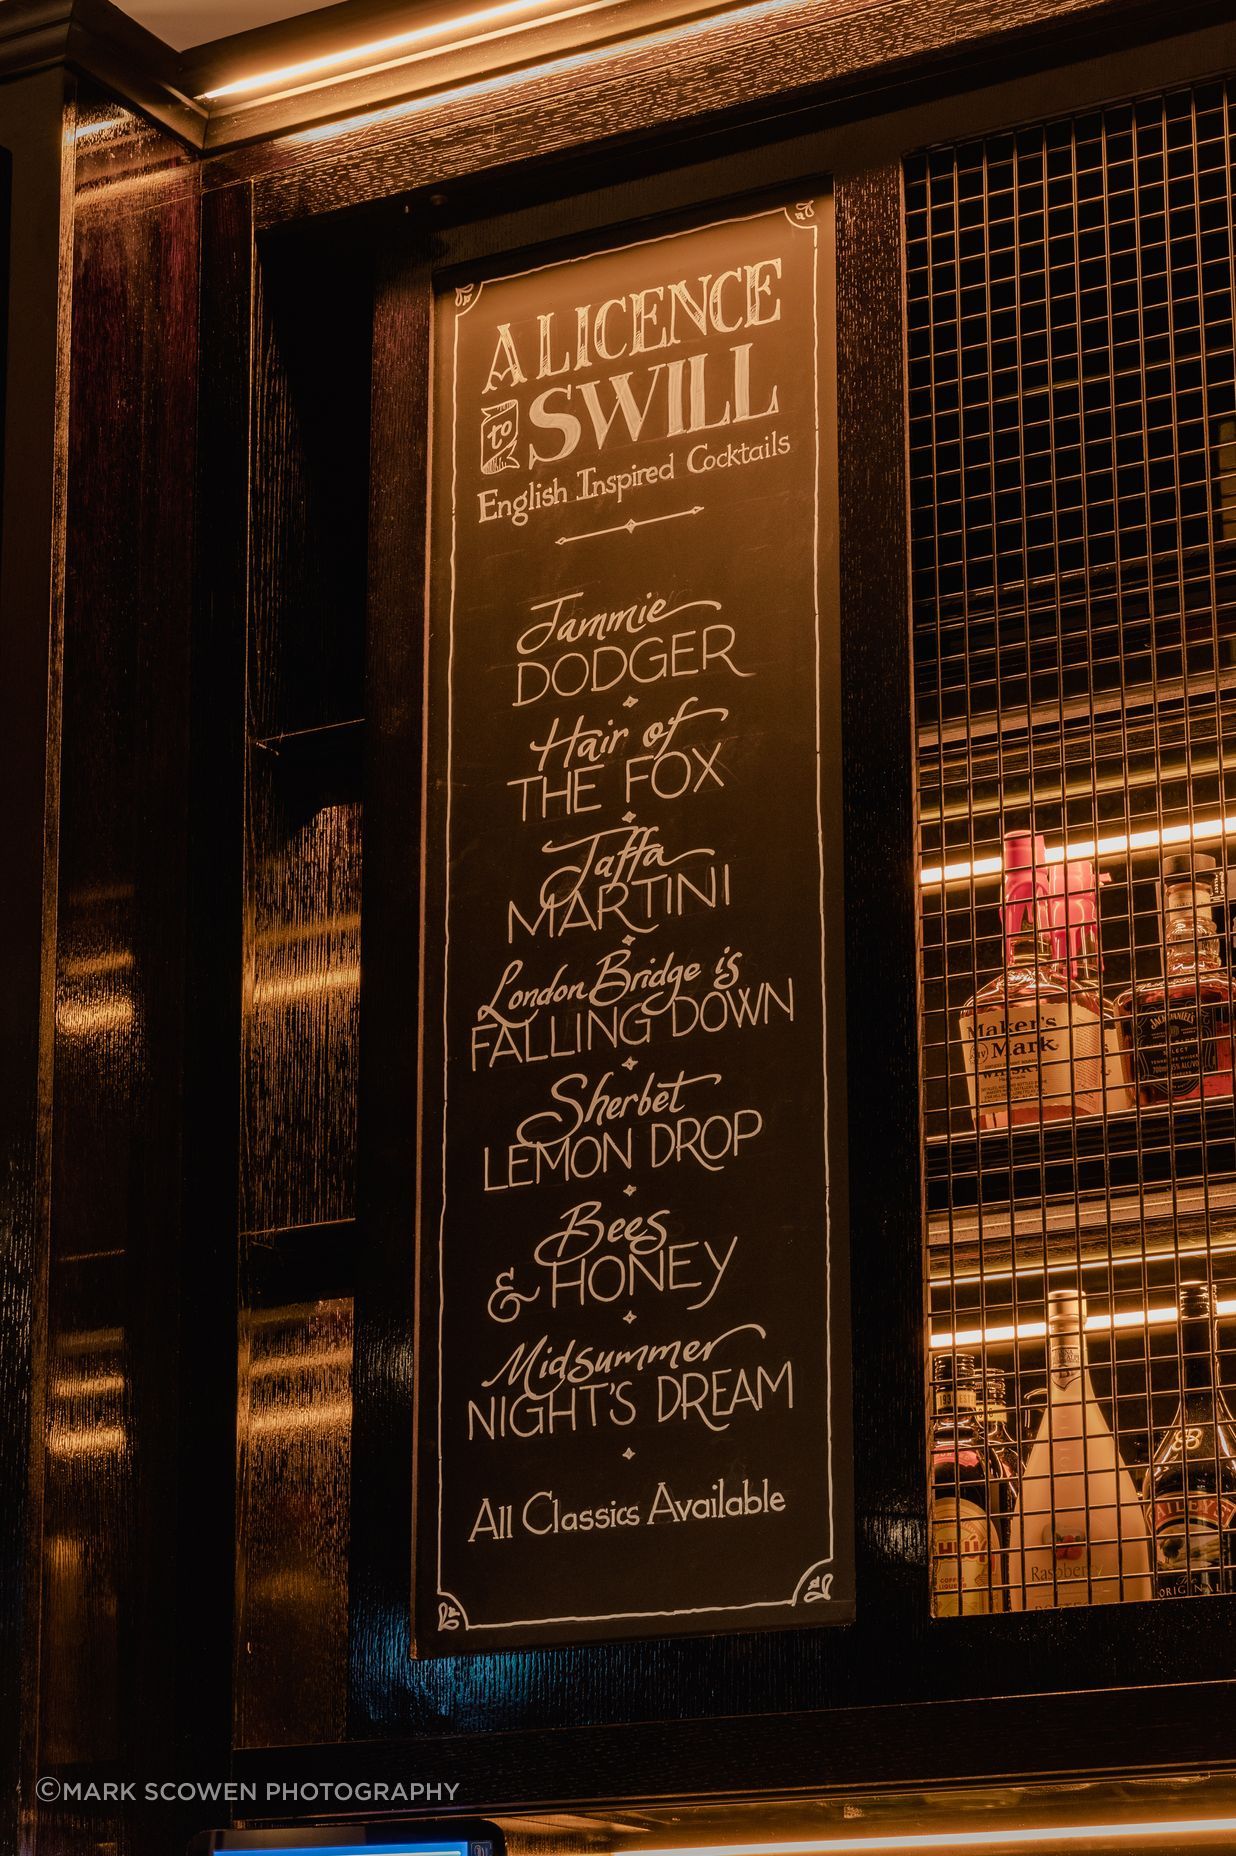 A LICENCE
to SWILL
English Inspired Cocktails
Jammie
DODGER
Hair of
THE FOX
Jaffa
MARTINI
London Bridge is
FALLING DOWN
Sherbet
LEMON DROP
Bees
& HONEY
Midsummer
NIGHT'S DREAM
All Classics Available
Maker's
Mark
WHISKY
JACK DANIEL'S
SELECT
Raspberry
BAILEYS
The
ORIGINAL
COFFEE
LIQUEUR
©MARK SCOWEN PHOTOGRAPHY